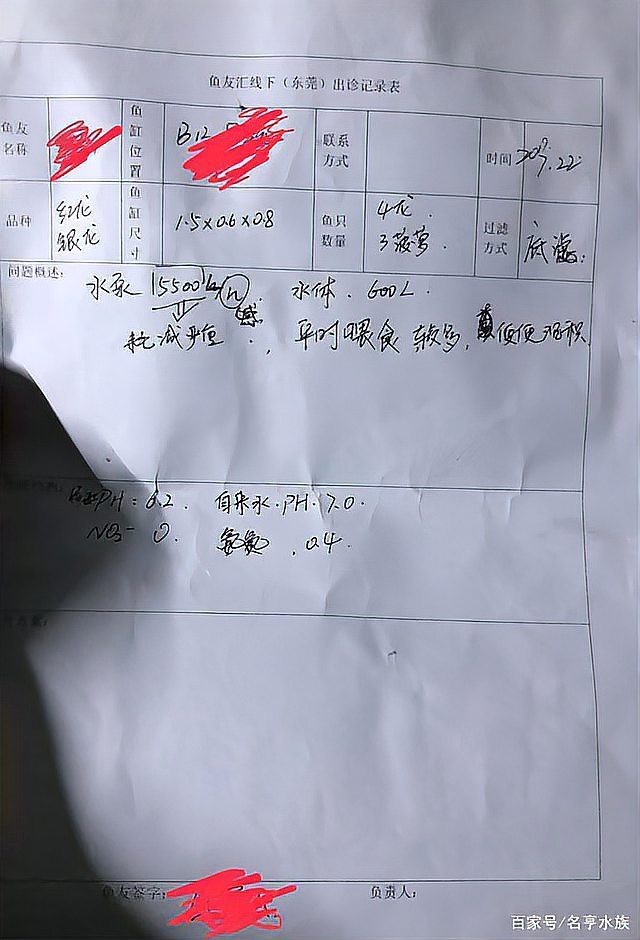 鱼友汇线下（东莞）出诊记录表
鱼友名称 鱼缸位置 B12 联系方式 时间
品种 红龙 银龙 鱼缸尺寸 1.5×0.6×0.8 鱼只数量 4龙. 3菠萝. 过滤方式 底滤.
问题概述:
水泵 15500 L/h. 水体. 600L.
, 平时喂食较多, 粪便便堆积
PH=6.2. 自来水.PH.7.0.
NO₃- 0. 氨氮 . 0.4.
方案:
鱼友签字: 负责人:
百家号/名亨水族